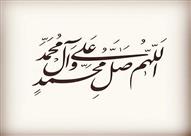 اللّهُمَّ صَلِّ عَلَى مُحَمَّدٍ وَآلِ مُحَمَّدٍ